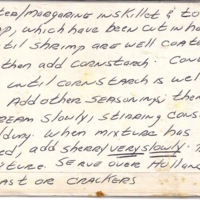 TER/MARGARINE IN SKILLET & TO
P, WHICH HAVE BEEN CUT IN HA
TIL SHRIMP ARE WELL COAT
THEN ADD CORNSTARCH. CON
UNTIL CORNSTARCH IS WEL
ADD OTHER SEASONING; THEN
REAM SLOWLY, STIRRING CONS
WHEN MIXTURE HAS
ED, ADD SHERRY VERY SLOWLY.
TURE. SERVE OVER HOLLAND
AST OR CRACKERS